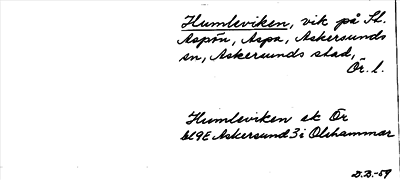 Humleviken, vik på St.
Aspön, Aspa, Askersunds
sn, Askersunds stad,
Ör. l.
Humleviken ek Ör
bl 9E Askersund 3i Olshammar
D.D.-59